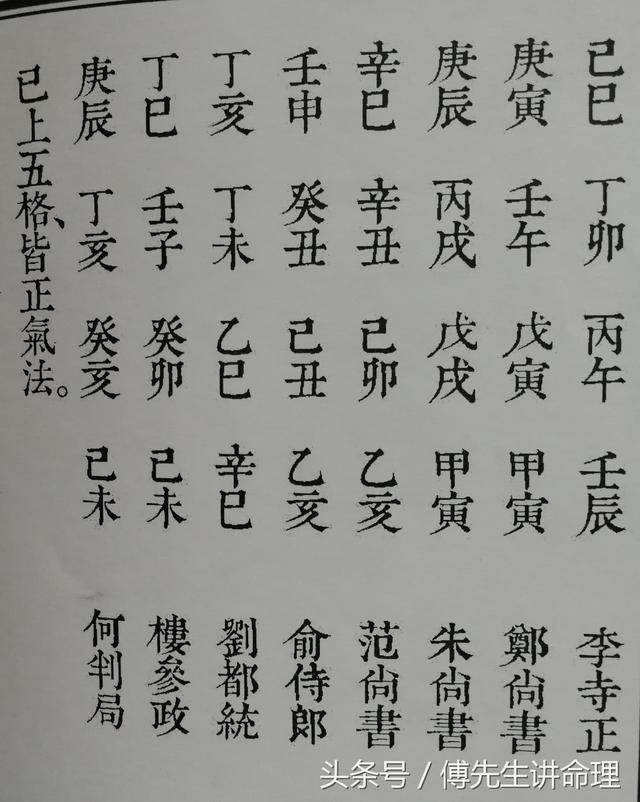 己巳 丁卯 丙午 壬辰 李寺正
庚寅 壬午 戊寅 甲寅 鄭尙書
庚辰 丙戌 戊戌 甲寅 朱尙書
辛巳 辛丑 己卯 乙亥 范尙書
壬申 癸丑 己丑 乙亥 俞侍郎
丁亥 丁未 乙巳 辛巳 劉都統
丁巳 壬子 癸卯 己未 樓參政
庚辰 丁亥 癸亥 己未 何判局
已上五格、皆正氣法。
头条号 / 傅先生讲命理